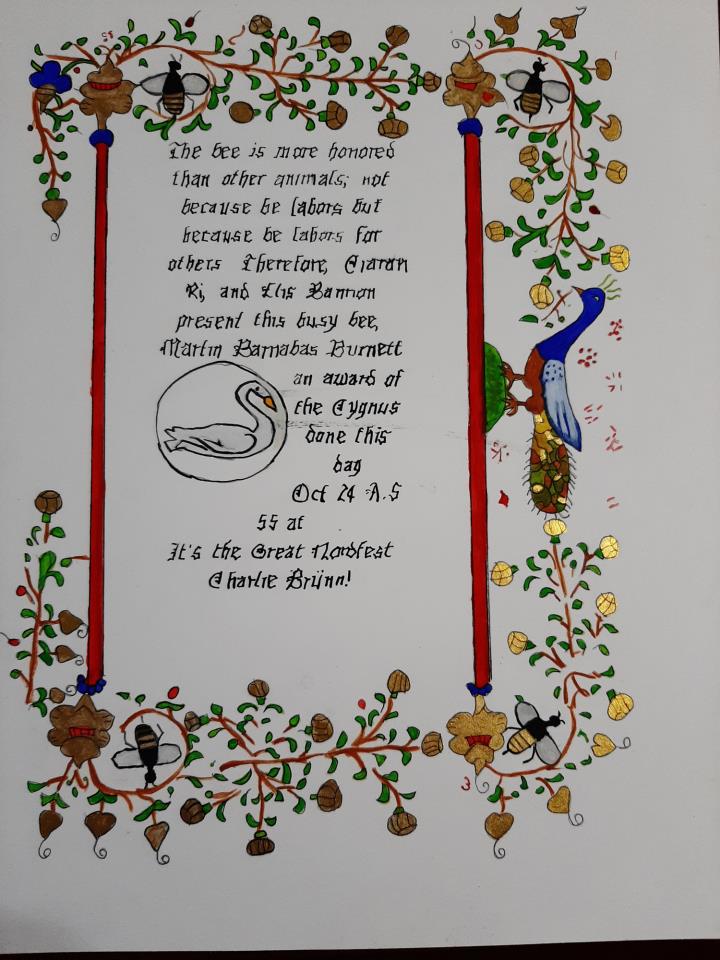 The bee is more honored
than other animals; not
because he labors but
because he labors for
others Therefore, Ciaran
Ri, and Elis Bannion
present this busy bee,
Martin Barnabas Burnett
an award of
the Cygnus
done this
day
Oct 24 A.S
55 at
It's the Great Nordfest
Charlie Brünn!